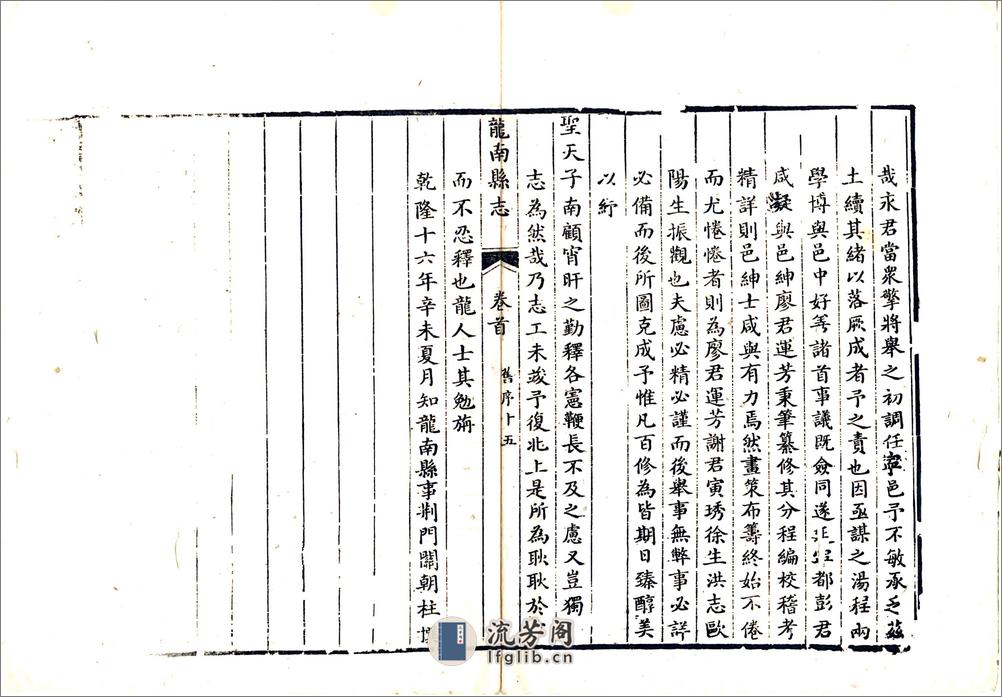 哉永君當眾擎將舉之初調任寧邑予不敏承乏茲
土續其緒以落厥成者予之責也因亟謀之湯程兩
學博與邑中好善諸首事議既僉同遂延寧都彭君
咸凝與邑紳廖君運芳秉筆纂修其分程編校稽考
精詳則邑紳士咸與有力焉然畫策布籌終始不倦
而尤惓惓者則為廖君運芳謝君寅琇徐生洪志歐
陽生振觀也夫慮必精必謹而後舉事無弊事必詳
必備而後所圖克成予惟凡百修為皆期日臻醇美
以紓
聖天子南顧宵旰之勤釋各憲鞭長不及之慮又豈獨
志為然哉乃志工未竣予復北上是所為耿耿於
龍南縣志 卷首 舊序十五
而不忍釋也龍人士其勉旃
乾隆十六年辛未夏月知龍南縣事荊門關朝柱
流芳阁
lfglib.cn